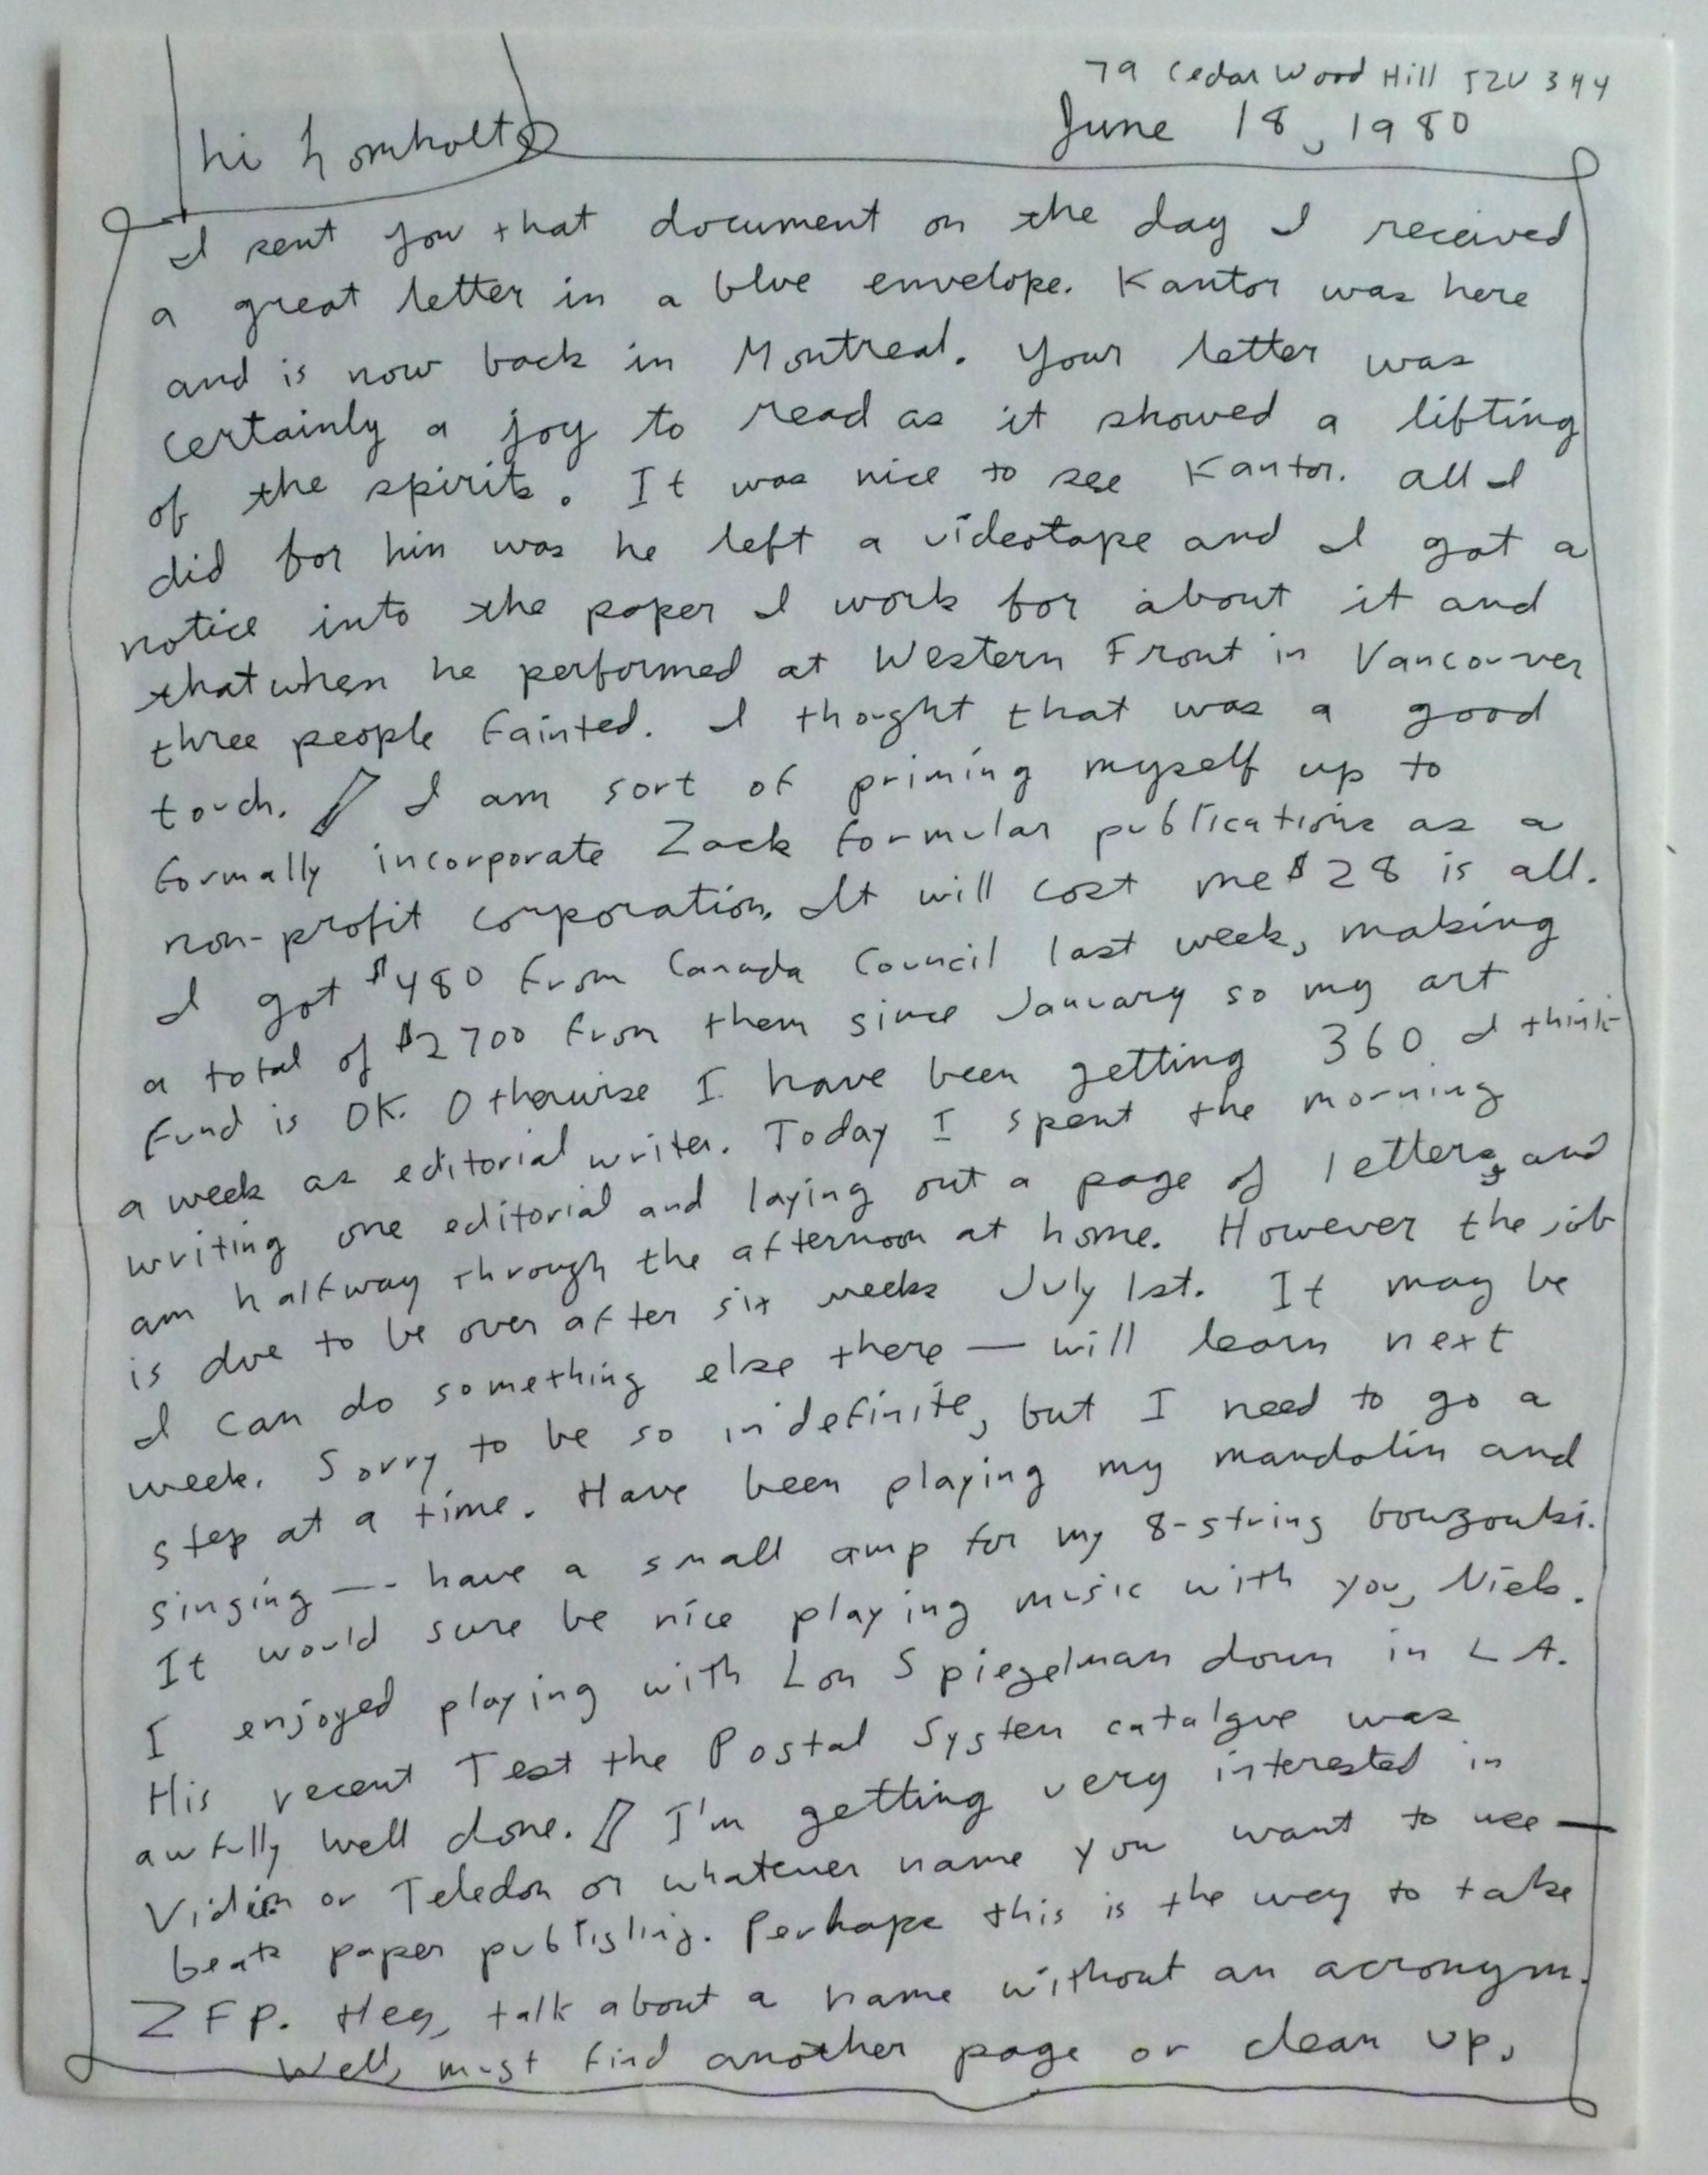 79 Cedar Wood Hill T2U 3H4
June 18, 1980
hi Lomholt
I sent you that document on the day I received
a great letter in a blue envelope. Kantor was here
and is now back in Montreal. Your letter was
certainly a joy to read as it showed a lifting
of the spirits. It was nice to see Kantor. All I
did for him was he left a videotape and I got a
notice into the paper I work for about it and
that when he performed at Western Front in Vancouver
three people fainted. I thought that was a good
touch. I am sort of priming myself up to
formally incorporate Zack formular publications as a
non-profit corporation. It will cost me $28 is all.
I got $480 from Canada Council last week, making
a total of $2700 from them since January so my art
fund is OK. Otherwise I have been getting 360 I think
a week as editorial writer. Today I spent the morning
writing one editorial and laying out a page of letters, and
am halfway through the afternoon at home. However the job
is due to be over after six weeks July 1st. It may be
I can do something else there — will learn next
week. Sorry to be so indefinite, but I need to go a
step at a time. Have been playing my mandolin and
singing -- have a small amp for my 8-string bouzouki.
It would sure be nice playing music with you, Niels.
I enjoyed playing with Lon Spiegelman down in L A.
His recent Test the Postal System catalgue was
awfully well done. I'm getting very interested in
or Teledon or whatever name you want to use —
beats paper publishing. Perhaps this is the way to take
ZFP. Hey, talk about a name without an acronym.
Well, must find another page or clean up,